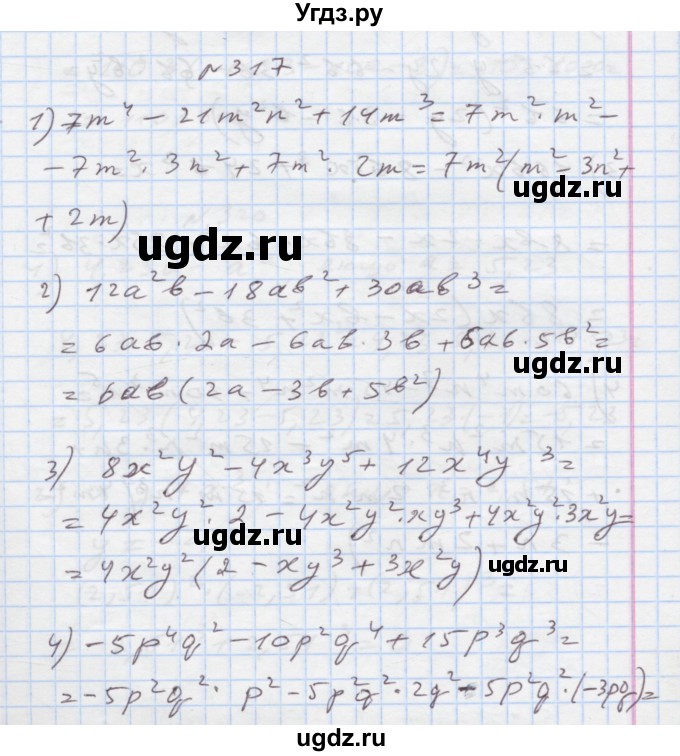 Угдз.ру
№317
1) 7m⁴ - 21m²n² + 14m³ = 7m²·m² -
- 7m²·3n² + 7m²·2m = 7m²(m² - 3n² +
ugdz.ru
+ 2m)
ugdz.ru
2) 12a²b - 18ab² + 30ab³ =
= 6ab·2a - 6ab·3b + 6ab·5b² =
= 6ab(2a - 3b + 5b²)
ugdz.ru
3) 8x²y² - 4x³y⁵ + 12x⁴y³ =
= 4x²y²·2 - 4x²y²·xy³ + 4x²y²·3x²y =
= 4x²y²(2 - xy³ + 3x²y)
ugdz.ru
4) -5p⁴q² - 10p²q⁴ + 15p³q³ =
= -5p²q²·p² - 5p²q²·2q² - 5p²q²·(-3pq) =